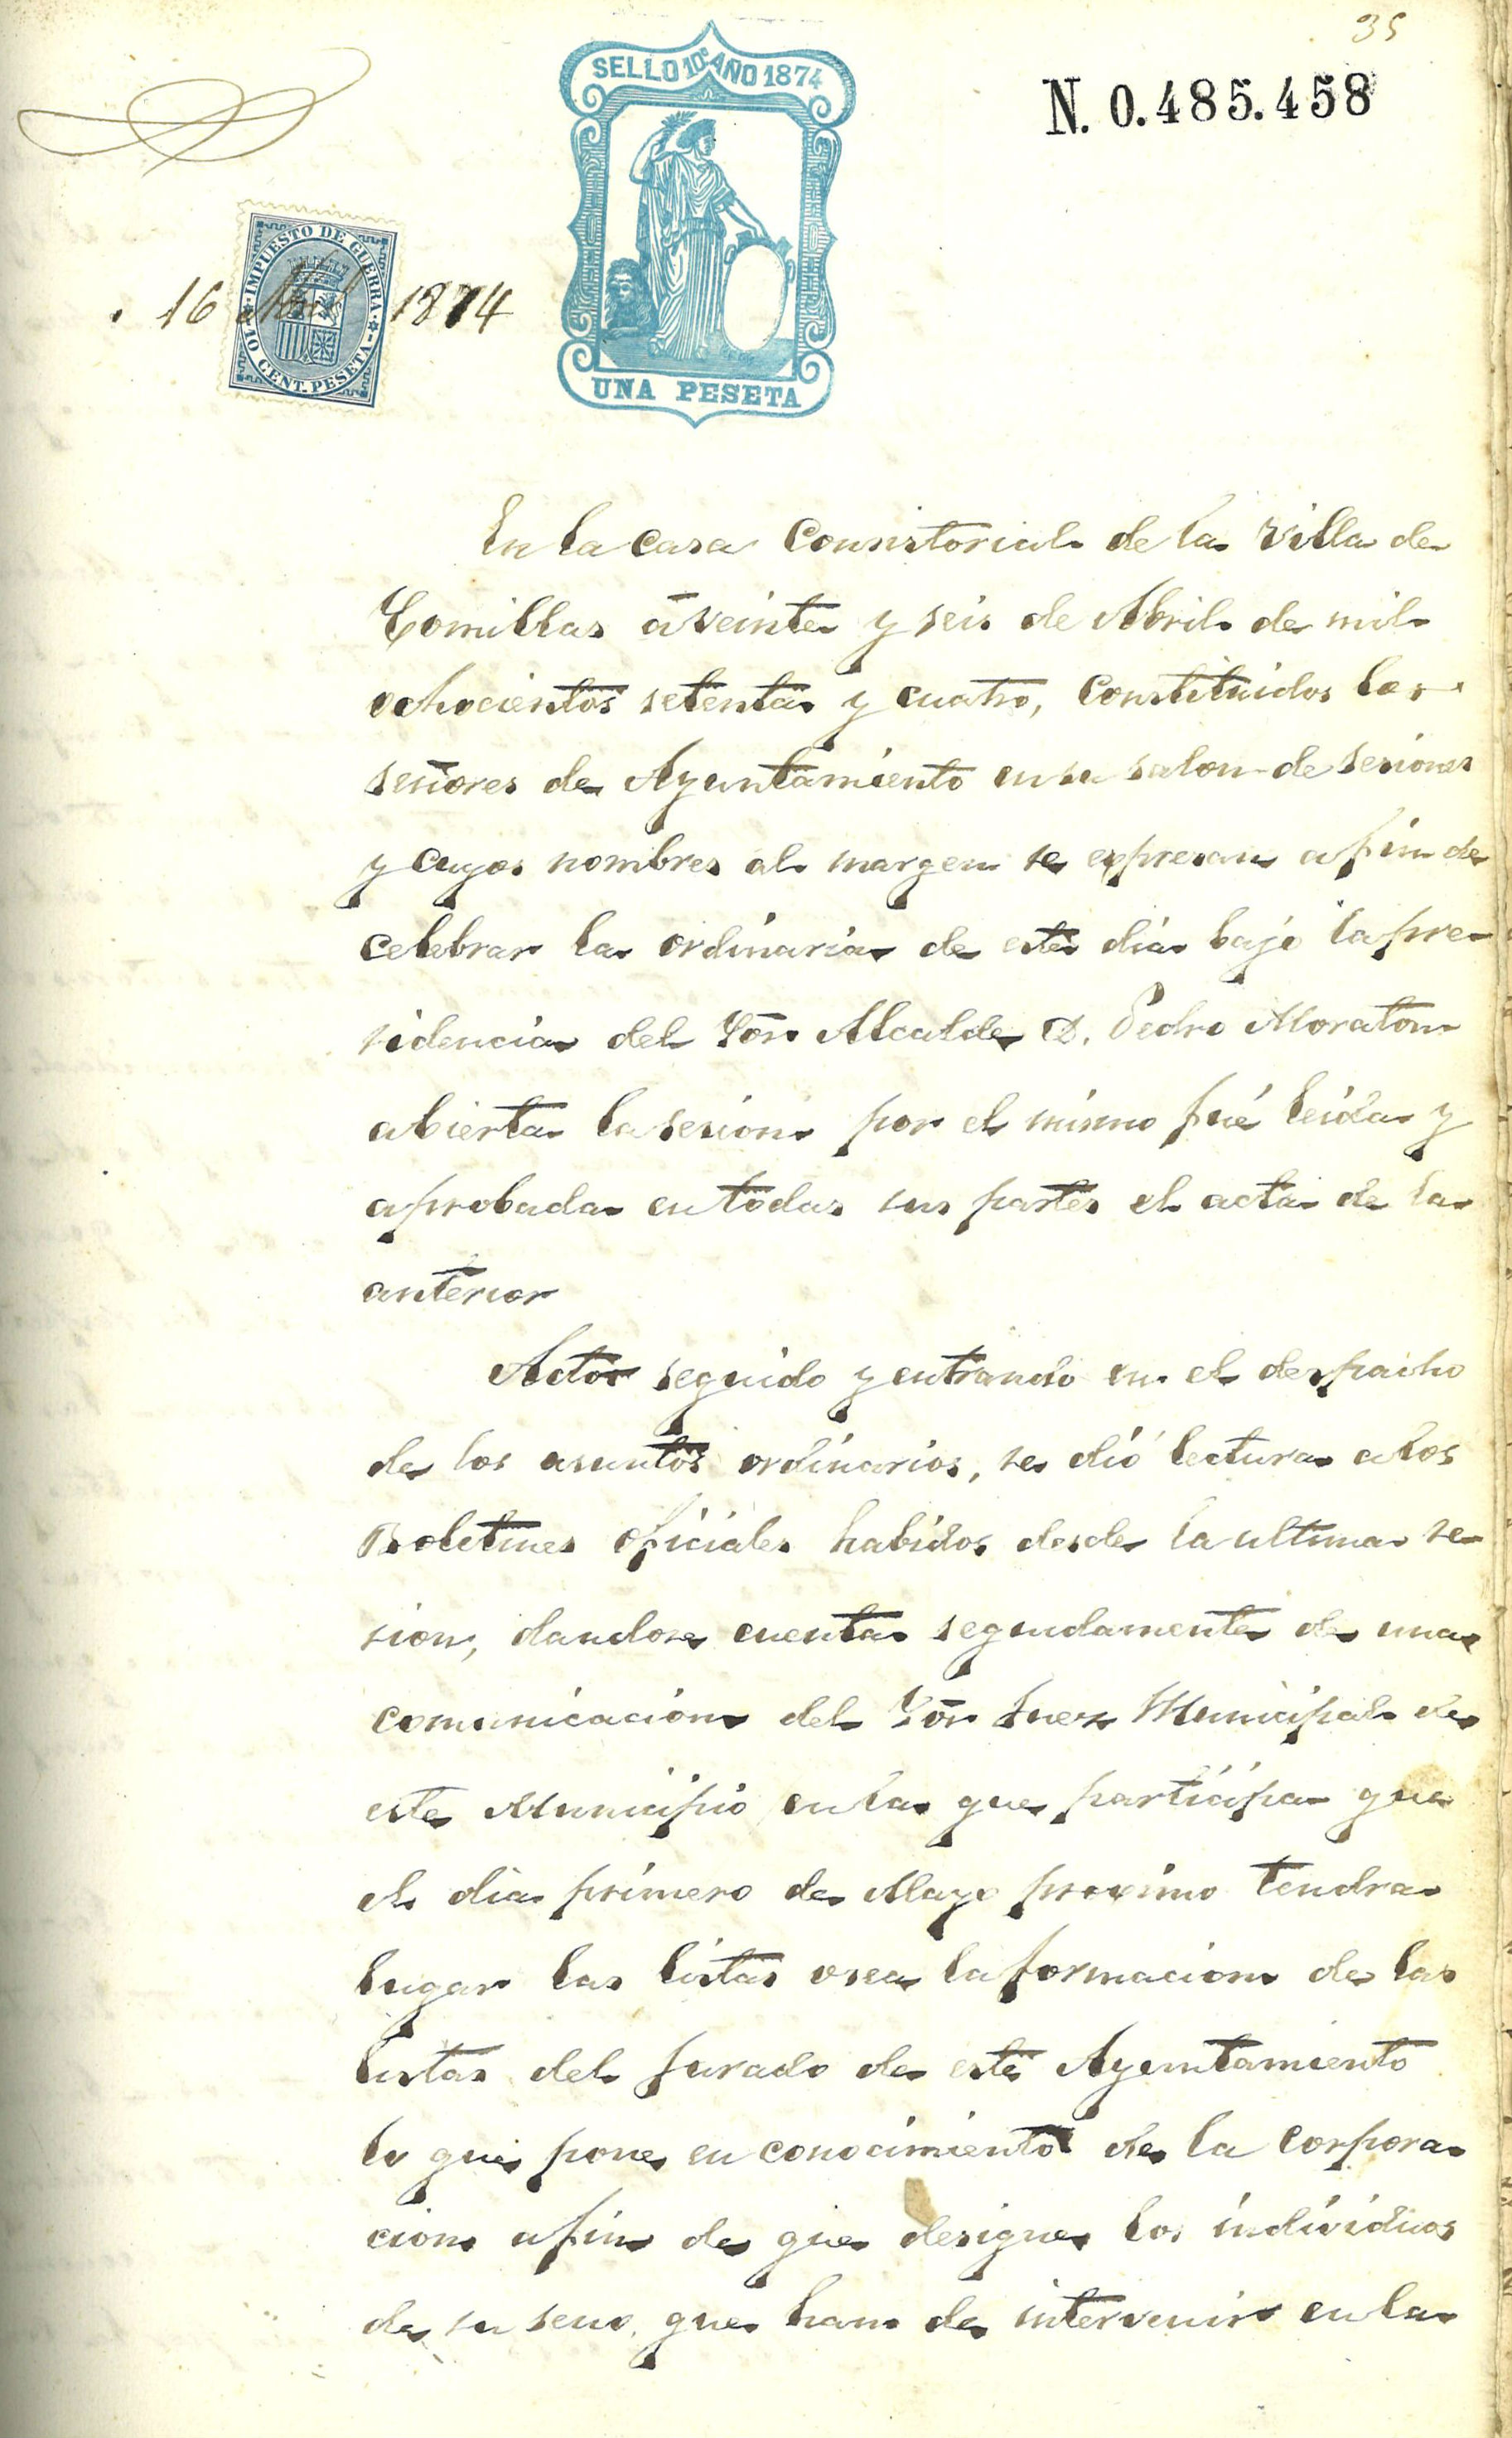 35
SELLO 10º AÑO 1874
N. 0.485.458
IMPUESTO DE GUERRA
10 CENT. PESETA
16 Abril 1874
UNA PESETA
En la casa Consistorial de la Villa de
Comillas á veinte y seis de Abril de mil
ochocientos setenta y cuatro, Constituidos los
señores de Ayuntamiento en su salon de sesiones
y cuyos nombres al margen se expresan a fin de
celebrar la ordinaria de este dia bajo la pre-
sidencia del Sōr Alcalde D. Pedro Moraton
abierta la sesion por el mismo fué leida y
aprobada en todas sus partes el acta de la
anterior
Acto seguido y entrando en el despacho
de los asuntos ordinarios, se dió lectura a los
Boletines oficiales habidos desde la ultima se-
sion, dandose cuenta seguidamente de una
comunicacion del Sōr Juez Municipal de
este Municipio en la que participa que
el dia primero de Mayo proximo tendra
lugar las listas osea la formacion de las
listas del Jurado de este Ayuntamiento
lo que pone en conocimiento de la corpora-
cion a fin de que designe los individuos
de su seno que han de intervenir en la